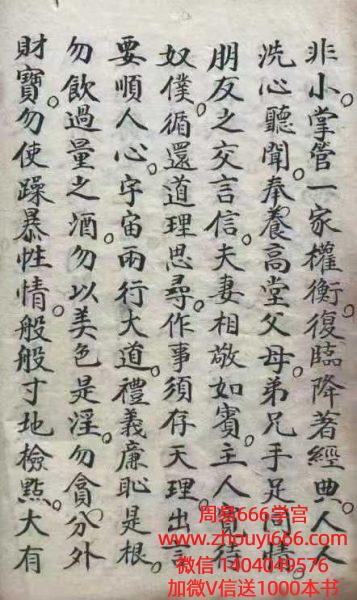 非小。掌管一家權衡。復臨降著經典。人人
洗心聽聞。奉養高堂父母。弟兄手足同情。
朋友之交言信。夫妻相敬如賓。主人寬待
奴僕。循還道理思尋。作事須存天理。出言
要順人心。宇宙兩行大道。禮義廉恥是根。
勿飲過量之酒。勿以美色是淫。勿貪分外
財寶。勿使躁暴性情。般般寸地檢點。大有
周易666学宫
www.zhouyi666.com
微信 1404049576
加微V信送1000本书